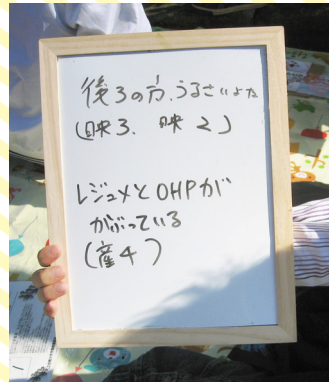 後ろの方、うるさいよな
(映3. 映2)
レジュメとOHPが
かぶっている
(産4)